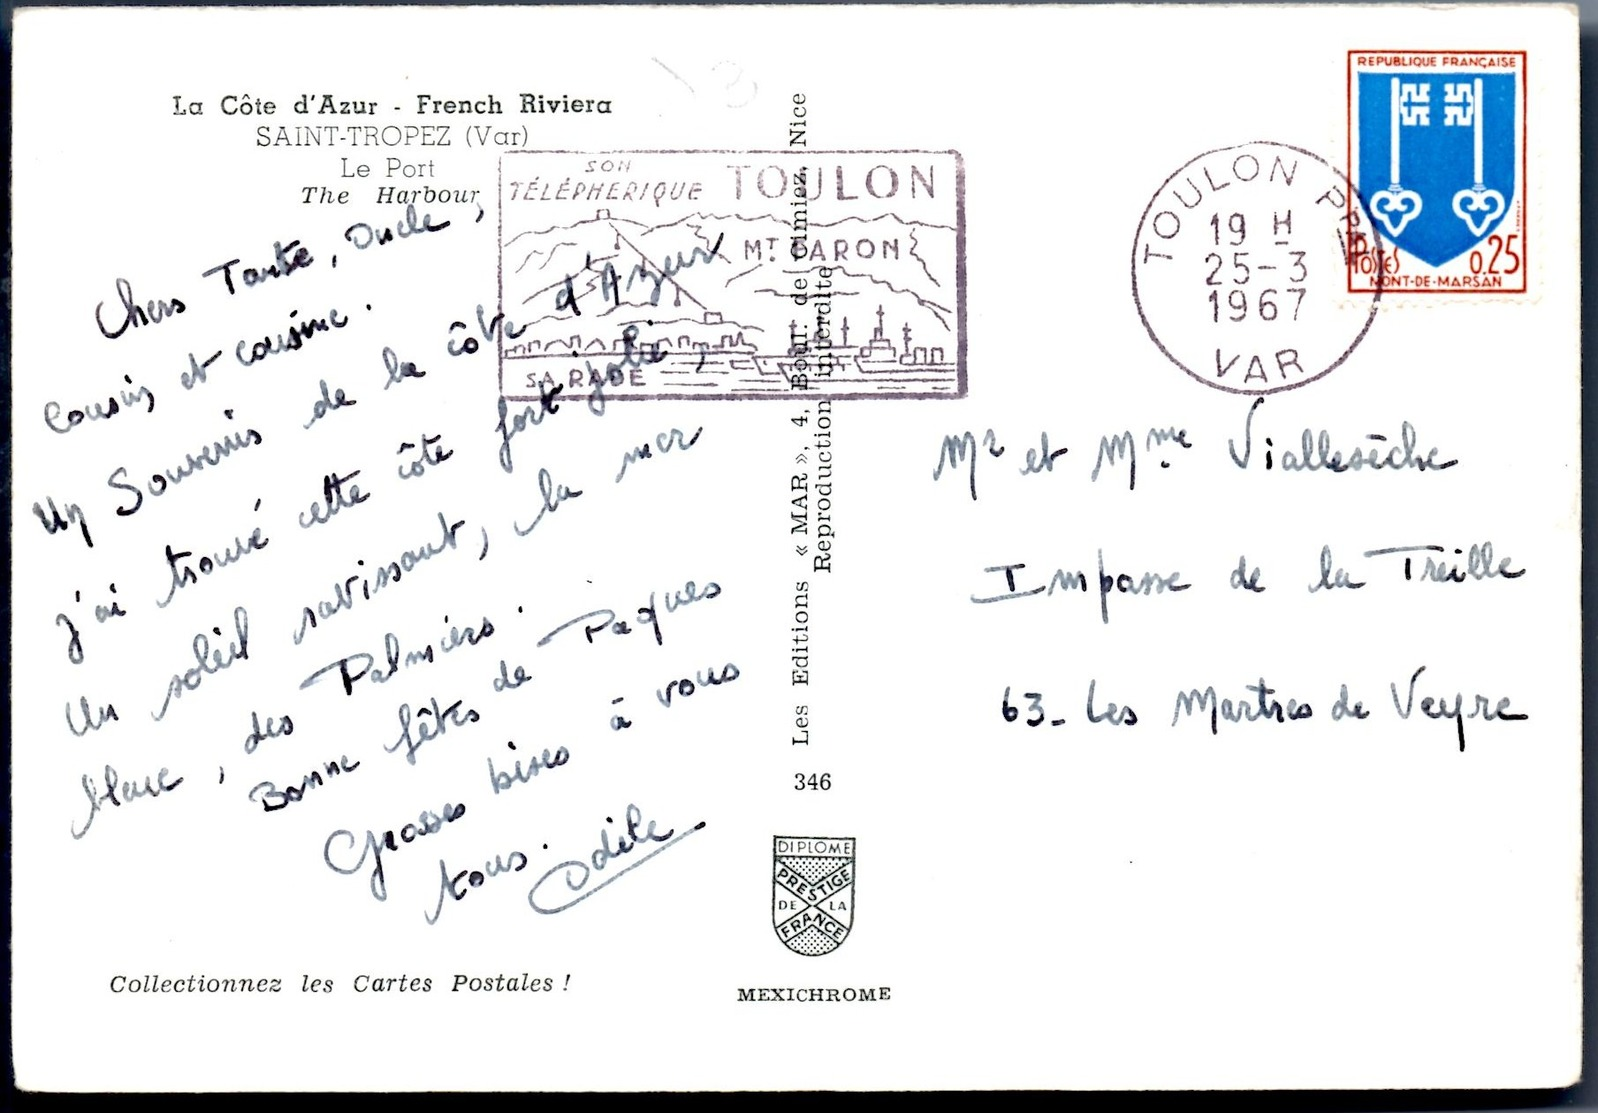 La Côte d'Azur - French Riviera
SAINT-TROPEZ (Var)
Le Port
The Harbour
Chers Tante, Oncle,
cousins et cousine.
Un Souvenis de la côte d'Azur
j'ai trouvé cette côte fort jolie,
Un soleil ravissant, la mer
bleue, des Palmiers.
Bonne fêtes de Paques
Grosses bises à vous
tous.
Odile
Collectionnez les Cartes Postales !
SON
TÉLÉPHERIQUE TOULON
MT. FARON
SA RADE
Les Editions « MAR », 4, Boul. de Cimiez, Nice
Reproduction interdite
346
DIPLOME
PRESTIGE
DE LA
FRANCE
MEXICHROME
TOULON PPAL
19 H
25-3
1967
VAR
REPUBLIQUE FRANÇAISE
POSTES 0.25
MONT-DE-MARSAN
Mr et Mme Viallesèche
Impasse de la Treille
63- Les Martres de Veyre